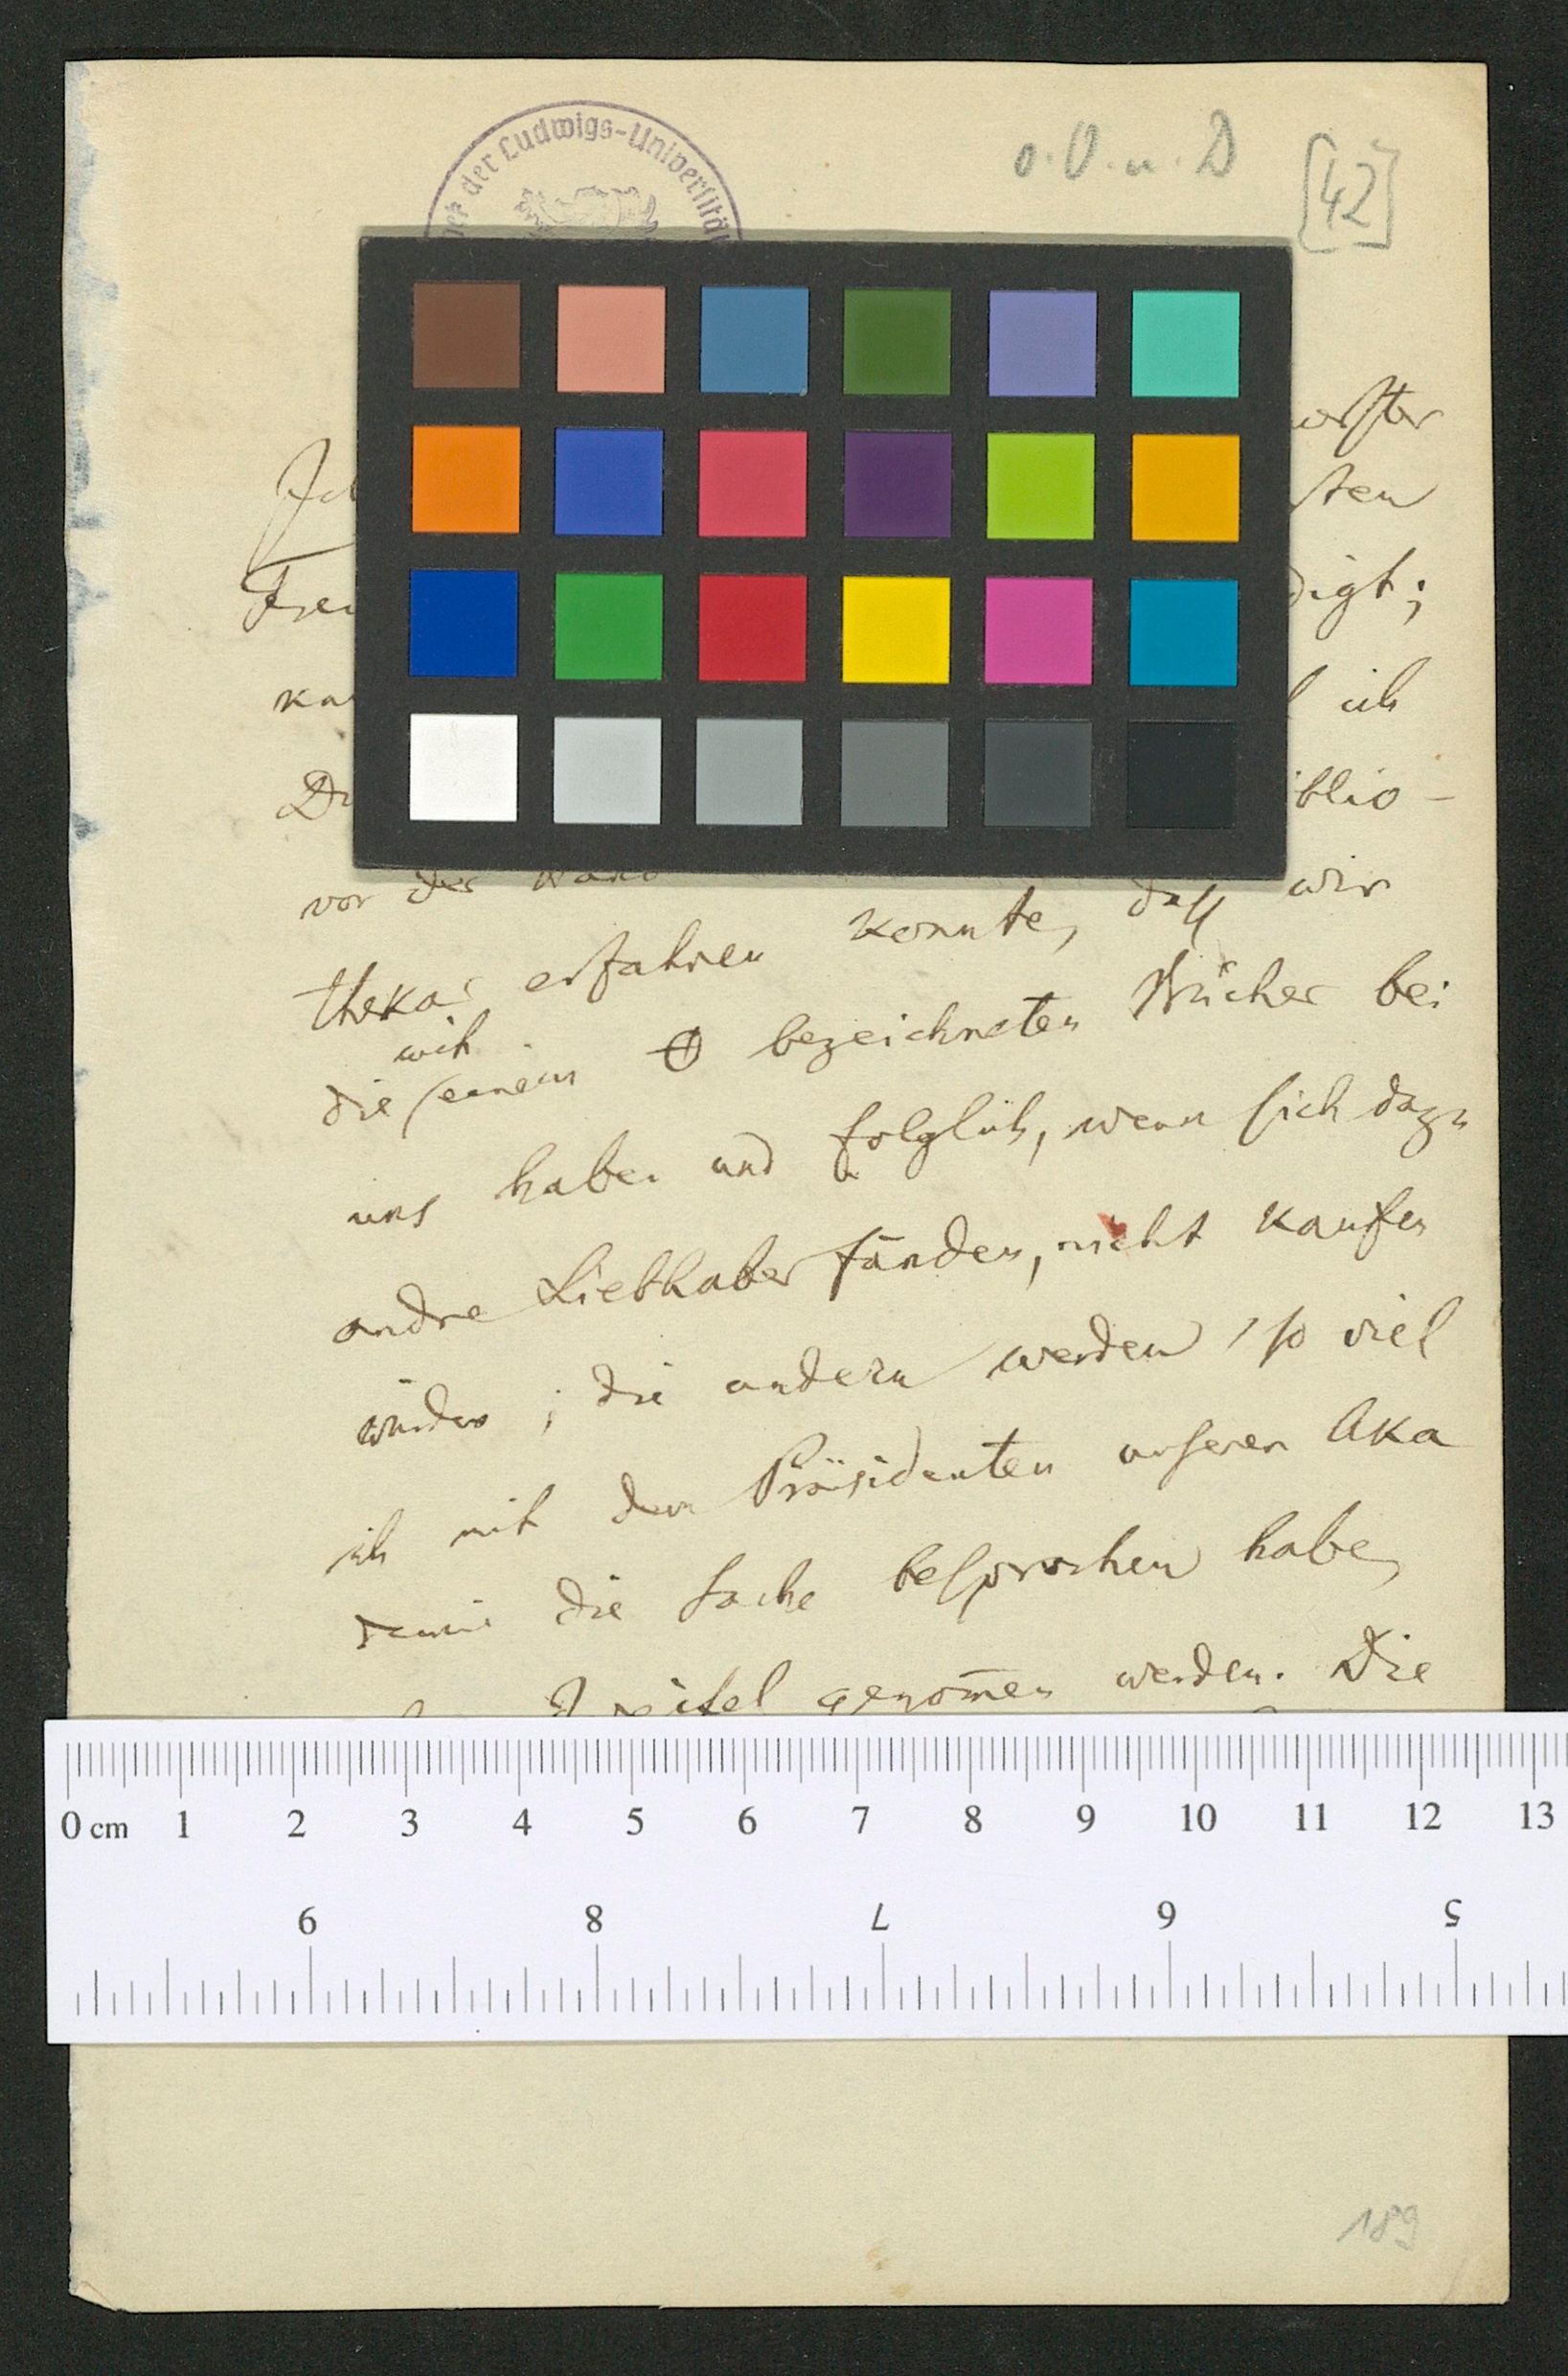 der Ludwigs-Universität
o. O. u. D [42]
ten
digt;
ich
Biblio-
vor der wir
thekar erfahren konnte, daß
mit
die einem bezeichneten Bücher bei
uns haben und folglich, wenn sich dazu
andre Liebhaber fänden, nicht kaufen
würden; die andern werden, so viel
ich mit dem Präsidenten unserer Aka
demie die Sache besprochen habe,
Zweifel genom̄en werden. Die
0 cm 1 2 3 4 5 6 7 8 9 10 11 12 13
9 8 7 6 5
189